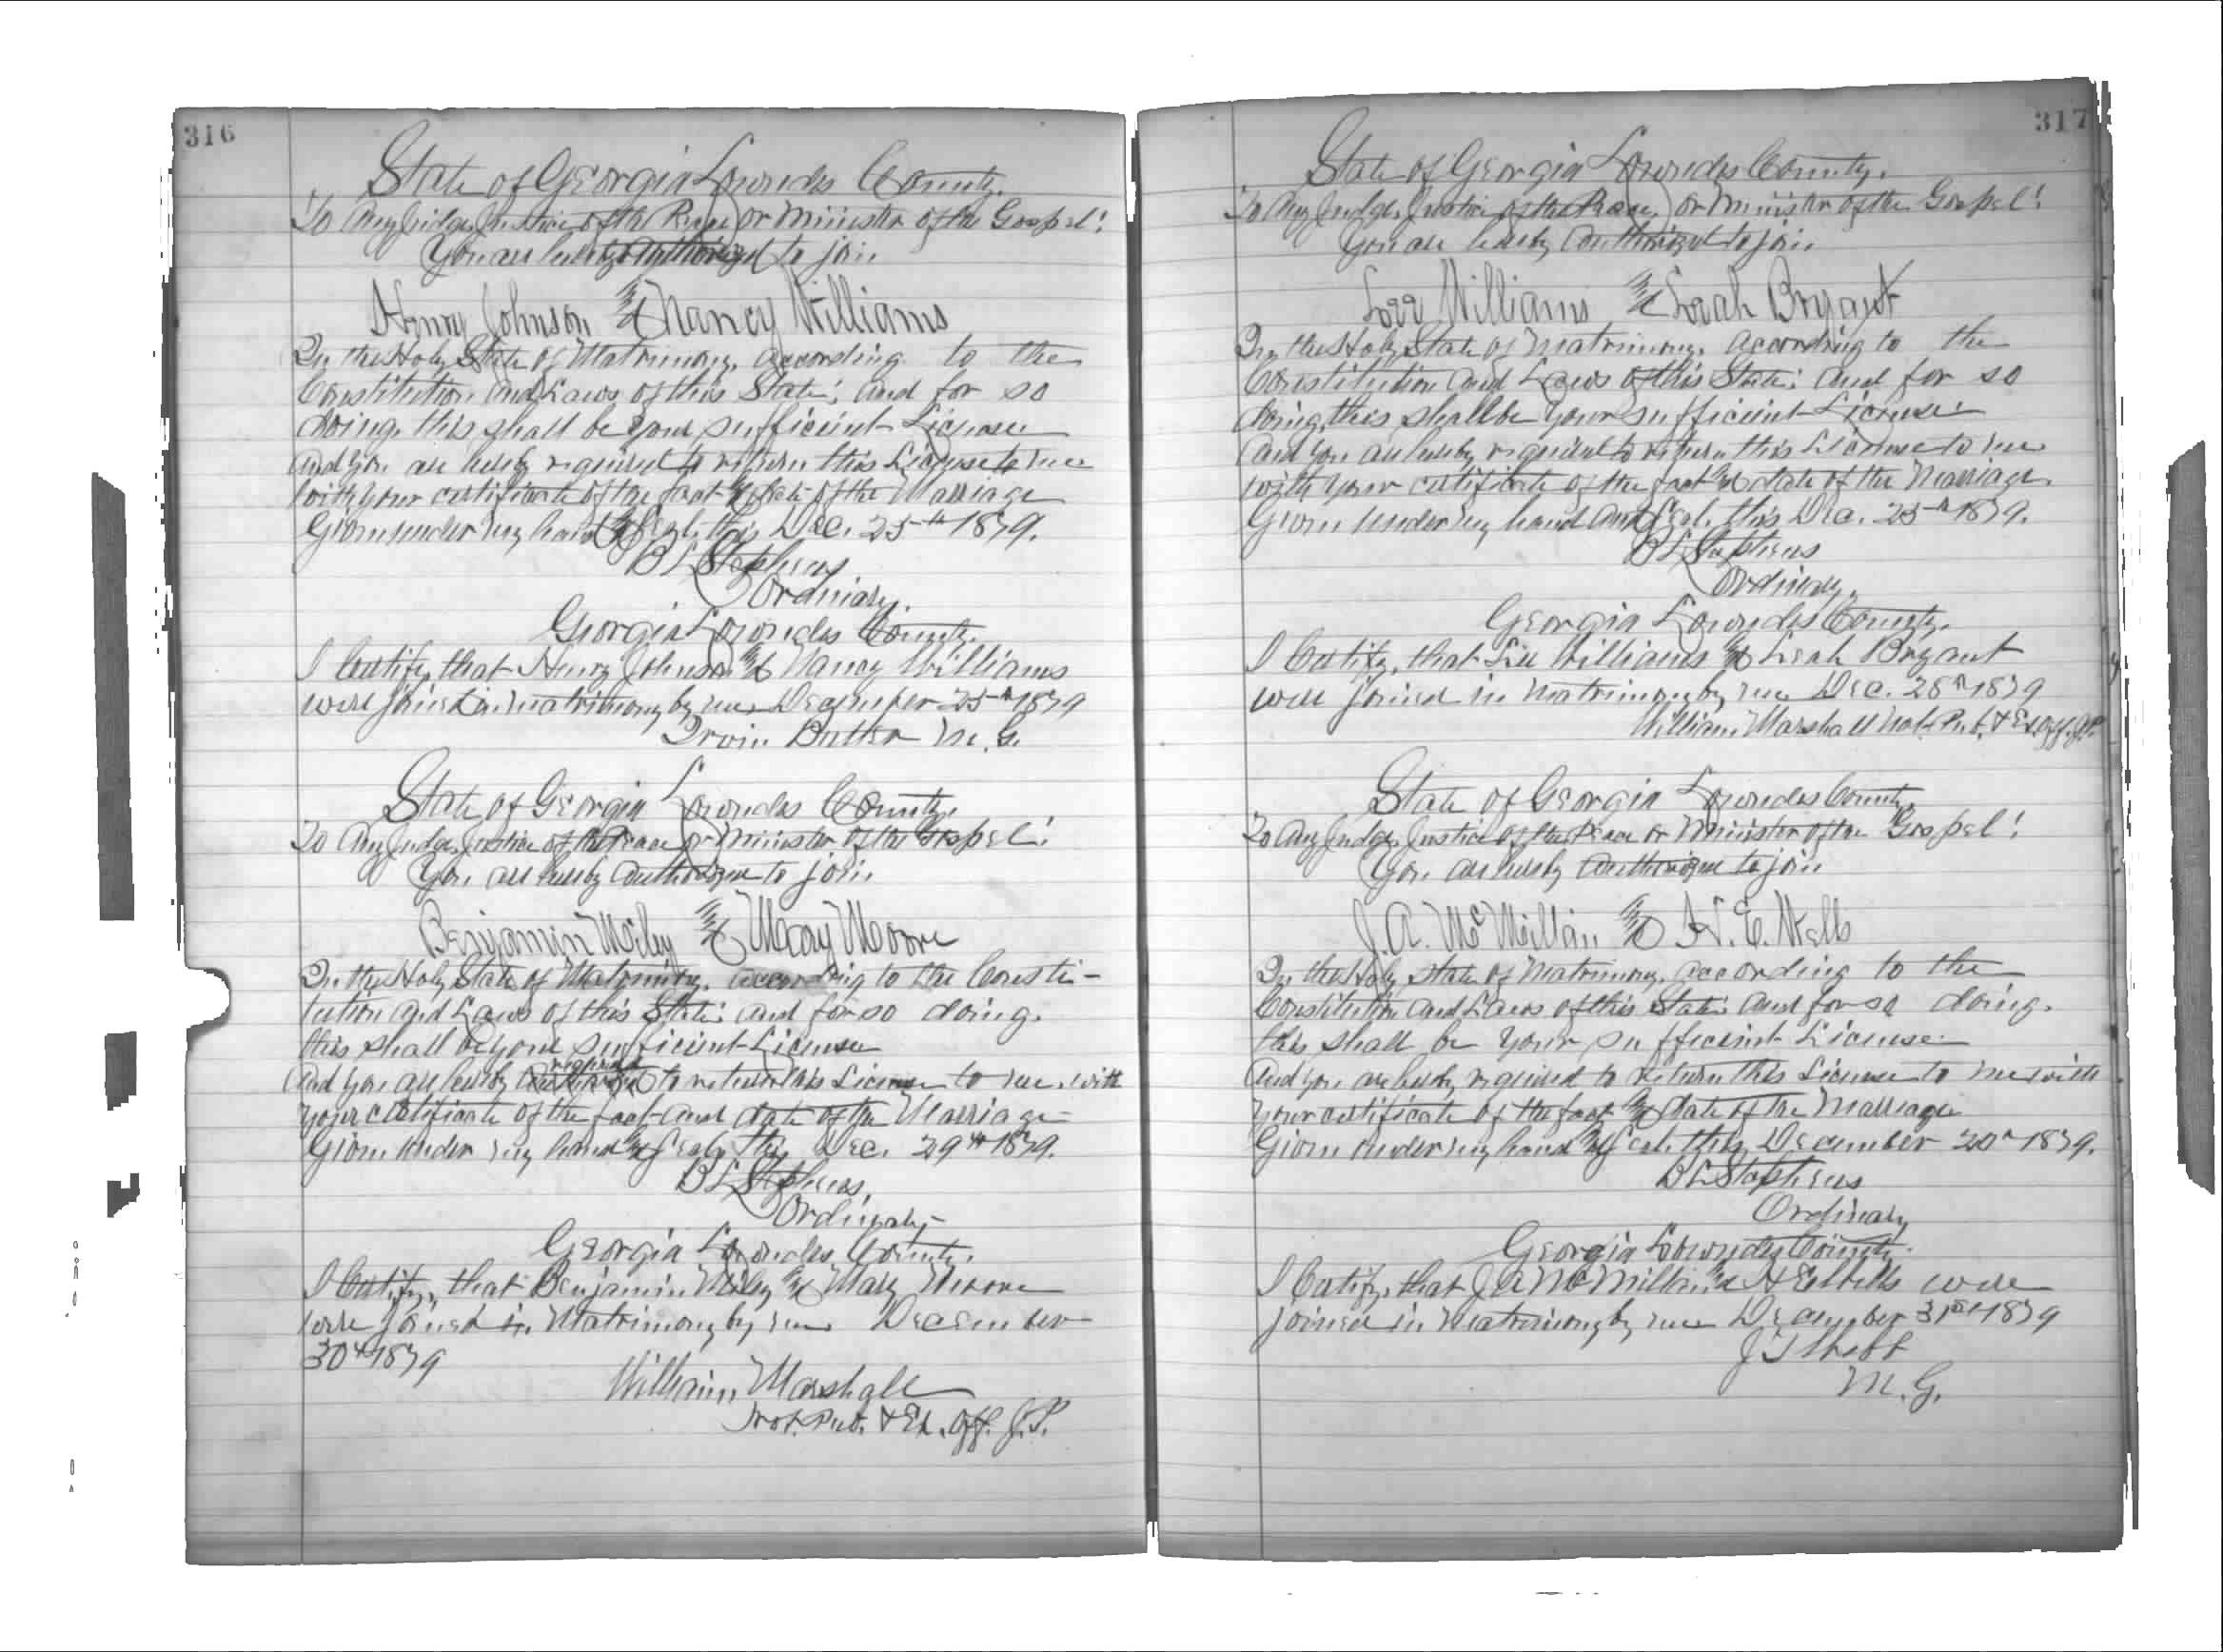 316
State of Georgia Lowndes County.
To Any Judge, Justice of the Peace or Minister of the Gospel!
You are hereby authorized to join
Henry Johnson & Nancy Williams
In the Holy State of Matrimony, according to the
Constitution and Laws of this State; and for so
doing, this shall be your sufficient License
And you are hereby required to return this License to me
with your certificate of the fact & date of the Marriage
Given under my hand & Seal, this Dec. 25th 1879.
B L Stephens
Ordinary.
Georgia Lowndes County.
I Certify, that Henry Johnson & Nancy Williams
were joined in matrimony by me December 25th 1879
Irvin Butler M. G.
State of Georgia Lowndes County,
To Any Judge, Justice of the Peace or Minister of the Gospel!
You are hereby authorized to join
Benjamin Wiley & Mary Moore
In the Holy State of Matrimony, according to the Consti-
tution and Laws of this State; and for so doing,
this shall be your sufficient License
And you are hereby required to return this License to me, with
your certificate of the fact and date of the Marriage
Given under my hand & Seal, this Dec. 29th 1879.
B L Stephens,
Ordinary
Georgia Lowndes County.
I Certify, that Benjamin Wiley & Mary Moore
were joined in Matrimony by me December
30th 1879
William Marshall
Not. Pub. & Ex. Off. J. P.
317
State of Georgia Lowndes County.
To Any Judge, Justice of the Peace, or Minister of the Gospel!
You are hereby authorized to join
Lee Williams & Leah Bryant
In the Holy State of Matrimony, according to the
Constitution and Laws of this State; and for so
doing, this shall be your sufficient License
And you are hereby required to return this License to me
with your certificate of the fact & date of the Marriage.
Given under my hand and Seal, this Dec. 25th 1879.
B L Stephens
Ordinary.
Georgia Lowndes County.
I Certify, that Lee Williams & Leah Bryant
were joined in matrimony by me Dec. 28th 1879
William Marshall Not. Pub. & Ex. Off. J.P.
State of Georgia Lowndes County,
To Any Judge, Justice of the Peace or Minister of the Gospel!
You are hereby authorized to join
J. A. McMillan & H. E. Wells
In the Holy State of Matrimony, according to the
Constitution and Laws of this State; and for so doing,
this shall be your sufficient License
And you are hereby required to return this License to me with
your certificate of the fact & date of the Marriage
Given under my hand & Seal, this, December 20th 1879.
B L Stephens
Ordinary
Georgia Lowndes County.
I Certify, that J A McMillan & H E Wells were
joined in matrimony by me December 31st 1879
J T
M. G.